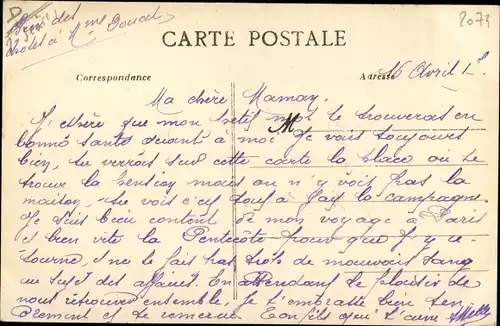 des
Hotel à Mme
2079
CARTE POSTALE
Correspondance
Adresse
16 Avril
Ma chère Maman,
J'espère que mon petit mot te trouveras en
bonne santé quant à moi Je vais toujours
bien, tu verras sur cette carte la place où se
trouve la pension mais on n'y vois pas la
maison, tu vois c'est tout à fait la campagne
Je suis bien content de mon voyage à Paris
et bien vite la Pentecôte pour que j'y re-
tourne, il ne le fait pas très de mauvais sang
au sujet des affaires. En attendant le plaisir de
nous retrouver ensemble, Je t'embrasse bien ten
drement et Ton fils qui t'aime